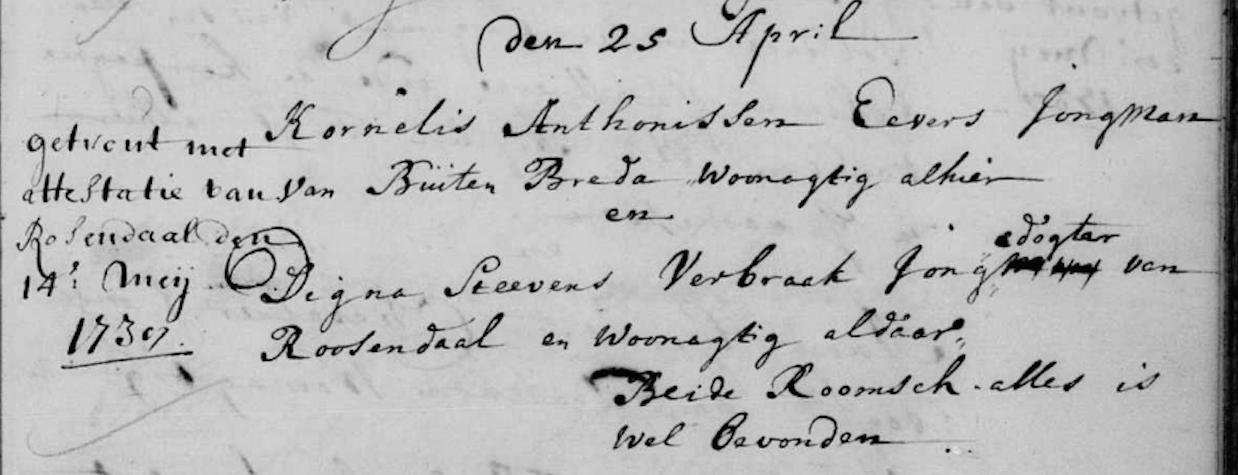 den 25 April
Kornelis Anthonissen Eevers Jongman
van Buiten Breda Woonagtig alhier
en
Digna Steevens Verbraak Jongdogter van
Roosendaal en Woonagtig aldaar
Beide Roomsch alles is
wel bevonden
getrout met
attestatie van
Rosendaal den
14: Meij
1739.